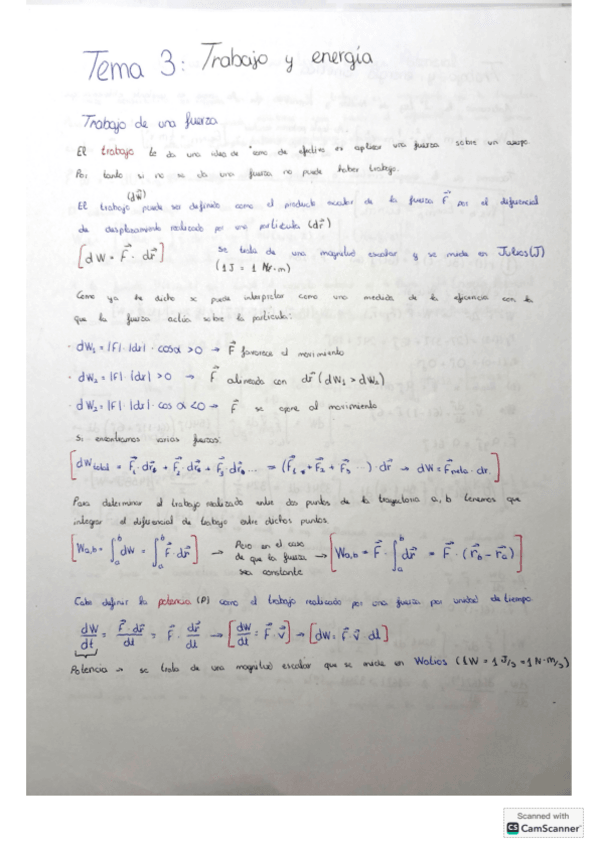 Tema 3: Trabajo y energía
Trabajo de una fuerza
El trabajo te da una idea de como de efectivo es aplicar una fuerza sobre un cuerpo.
Por tanto si no se da una fuerza no puede haber trabajo.
(dW)
El trabajo puede ser definido como el producto escalar de la fuerza F⃗ por el diferencial
de desplazamiento realizado por una partícula (dr⃗)
[dW = F⃗ · dr⃗] se trata de una magnitud escalar y se mide en Julios (J)
(1J = 1 N·m)
Como ya he dicho se puede interpretar como una medida de la eficiencia con la
que la fuerza actúa sobre la partícula:
· dW₁ = |F| · |dr| · cosα > 0 → F⃗ favorece el movimiento
· dW₂ = |F| · |dr| > 0 → F⃗ alineada con dr⃗ (dW₁ > dW₂)
· dW₃ = |F| · |dr| · cos α < 0 → F⃗ se opone al movimiento
Si existen varias fuerzas:
[dW total = F⃗₁ · dr⃗₁ + F⃗₂ · dr⃗₂ + F⃗₃ · dr⃗₃ ... = (F⃗₁ + F⃗₂ + F⃗₃ ...) · dr⃗ → dW = F⃗neta · dr.]
Para determinar el trabajo realizado entre dos puntos de la trayectoria a, b tenemos que
integrar el diferencial de trabajo entre dichos puntos.
[Wa,b = ∫ₐᵇ dW = ∫ₐᵇ F⃗ · dr⃗] → Pero en el caso de que la fuerza sea constante → [Wa,b = F⃗ · ∫ₐᵇ dr⃗ = F⃗ · (r⃗b − r⃗a)]
Cabe definir la potencia (P) como el trabajo realizado por una fuerza por unidad de tiempo
dW/dt = F⃗ · dr⃗/dt = F⃗ · dr⃗/dt → [dW/dt = F⃗ · v⃗] → [dW = F⃗ · v⃗ dt]
Potencia → se trata de una magnitud escalar que se mide en Watios (1W = 1 J/s = 1 N·m/s)
Scanned with
CS CamScanner